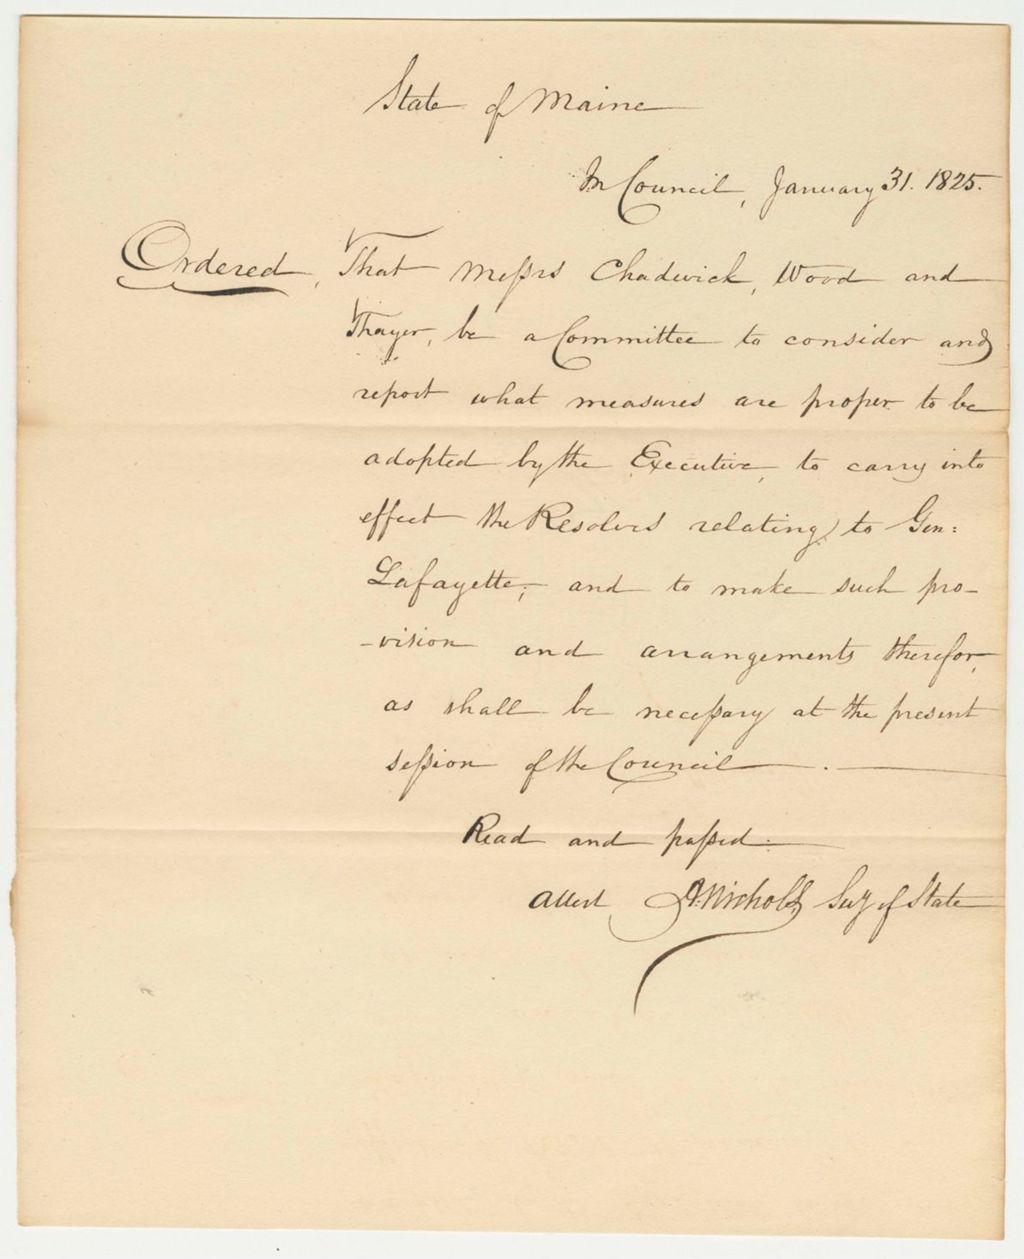 State of Maine
In Council, January 31. 1825.
Ordered, That Messrs Chadwick, Wood and
Thayer, be a Committee to consider and
report what measures are proper to be
adopted by the Executive, to carry into
effect the Resolves relating to Gen:
Lafayette, and to make such pro-
-vision and arrangements therefor,
as shall be necessary at the present
session of the Council.
Read and passed.
Attest A. Nichols, Secy of State